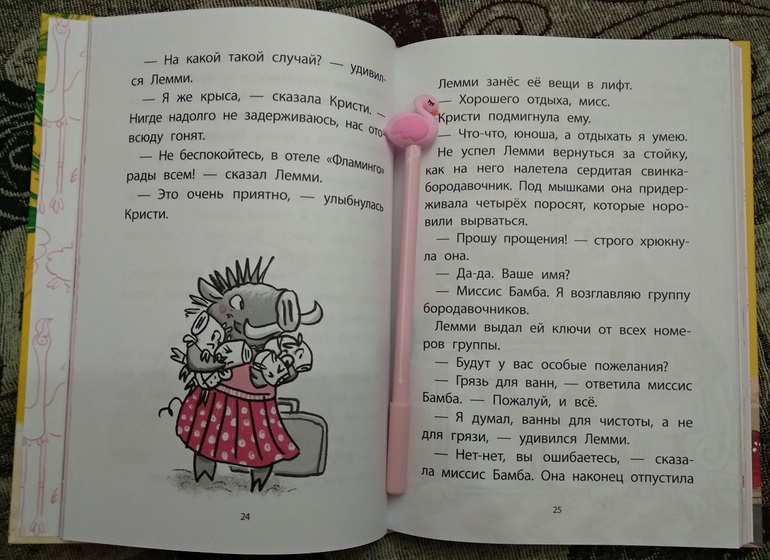 — На какой такой случай? — удивил-
ся Лемми.
— Я же крыса, — сказала Кристи. —
Нигде надолго не задерживаюсь, нас ото-
всюду гонят.
— Не беспокойтесь, в отеле «Фламинго»
рады всем! — сказал Лемми.
— Это очень приятно, — улыбнулась
Кристи.
24
Лемми занёс её вещи в лифт.
— Хорошего отдыха, мисс.
Кристи подмигнула ему.
— Что-что, юноша, а отдыхать я умею.
Не успел Лемми вернуться за стойку,
как на него налетела сердитая свинка-
бородавочник. Под мышками она придер-
живала четырёх поросят, которые норо-
вили вырваться.
— Прошу прощения! — строго хрюкну-
ла она.
— Да-да. Ваше имя?
— Миссис Бамба. Я возглавляю группу
бородавочников.
Лемми выдал ей ключи от всех номе-
ров группы.
— Будут у вас особые пожелания?
— Грязь для ванн, — ответила миссис
Бамба. — Пожалуй, и всё.
— Я думал, ванны для чистоты, а не
для грязи, — удивился Лемми.
— Нет-нет, вы ошибаетесь, — сказа-
ла миссис Бамба. Она наконец отпустила
25